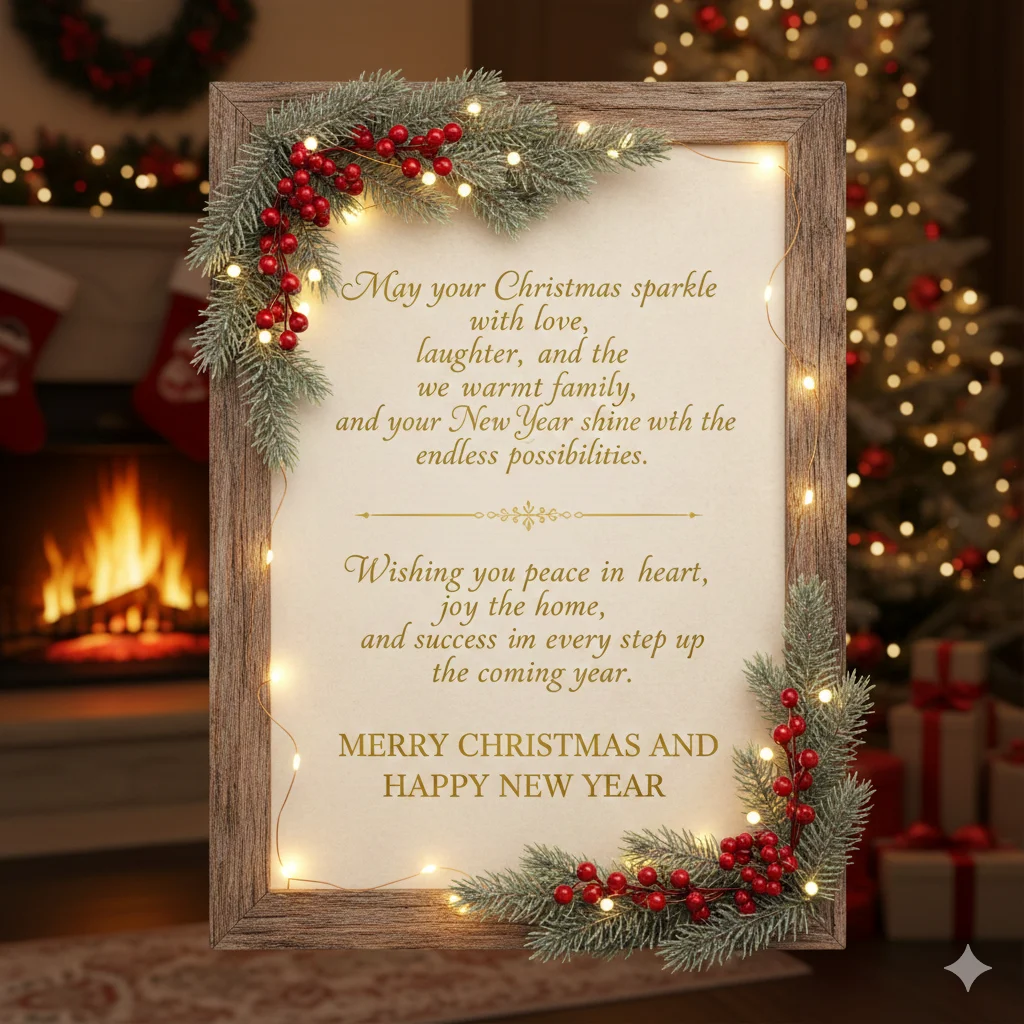 May your Christmas sparkle
with love,
laughter, and the
we warmt family,
and your New Year shine wth the
endless possibilities.
Wishing you peace in heart,
joy the home,
and success im every step up
the coming year.
MERRY CHRISTMAS AND
HAPPY NEW YEAR